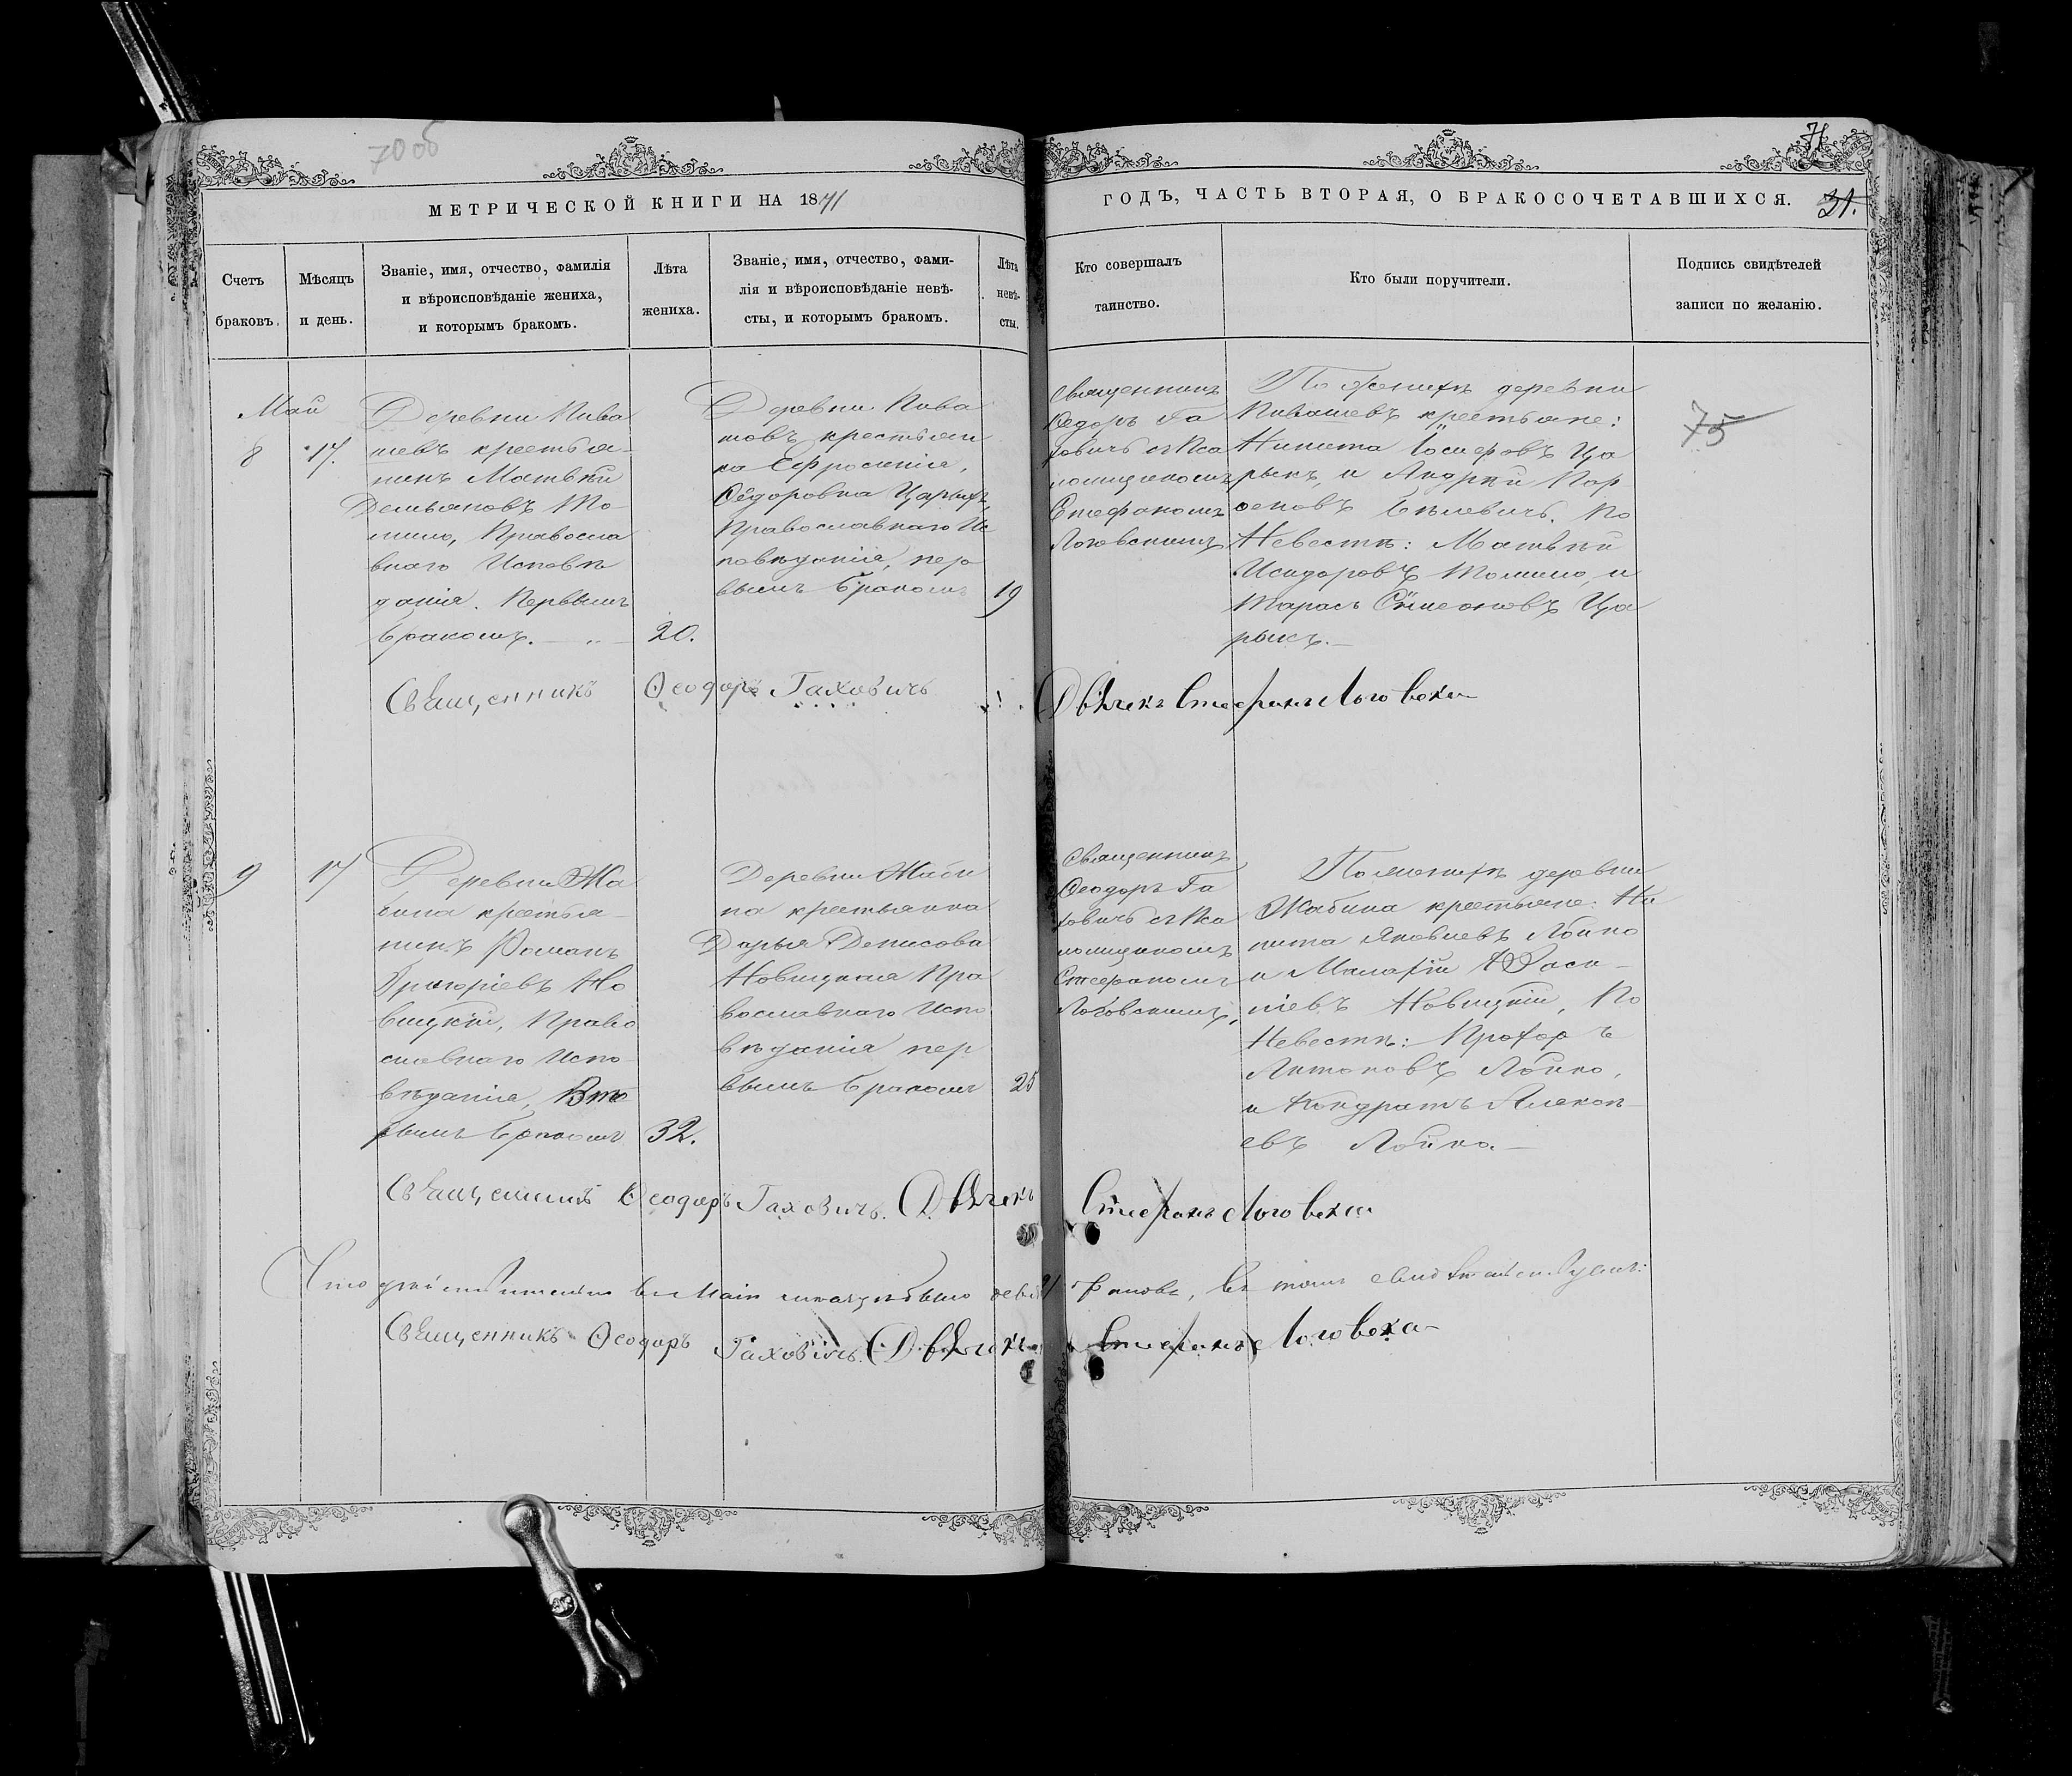 70 об
71
МЕТРИЧЕСКОЙ КНИГИ НА 1871
ГОДЪ, ЧАСТЬ ВТОРАЯ, О БРАКОСОЧЕТАВШИХСЯ.
31.
Счетъ
браковъ.
Мѣсяцъ
и день.
Званіе, имя, отчество, фамилія
и вѣроисповѣданіе жениха,
и которымъ бракомъ.
Лѣта
жениха.
Званіе, имя, отчество, фами-
лія и вѣроисповѣданіе невѣ-
сты, и которымъ бракомъ.
Лѣта
невѣ-
сты.
Кто совершалъ
таинство.
Кто были поручители.
Подпись свидѣтелей
записи по желанію.
Май
8
17.
Деревни Пива
шевъ крестья-
нинъ Матвѣй
Демьяновъ То-
мило, Правосла
внаго Исповѣ
данія. Первымъ
бракомъ.
20.
Деревни Пива
шовъ крестьян
ка Ефросинія,
Ѳедоровна Царыкъ,
Православнаго Ис
повѣданія, пер
вымъ бракомъ
19
Священникъ
Ѳеодоръ Га
ховичъ съ Пса
ломщикомъ
Стефаномъ
Логовскимъ
По Женихѣ деревни
Пивашевъ крестьяне:
Никита Іосифовъ Ца
рыкъ, и Андрей Пар
ѳеновъ
По
Невестѣ: Матвѣй
Исидоровъ Томило, и
Тарасъ Сѵмеоновъ Ца
рыкъ.
75
Священникъ Ѳеодоръ Гаховичъ
Дьячекъ Стефанъ Логовски
9
17
Деревни Жа
бина крестья-
нинъ Романъ
Григоріевъ Но
вицкій, Право
славнаго Испо
вѣданія, Вто
рымъ бракомъ
32.
Деревни Жаби
на крестьянка
Дарья Денисова
Новицкая Пра
вославнаго Испо
вѣданія пер
вымъ бракомъ
25
Священникъ
Ѳеодоръ Га
ховичъ съ Пса
ломщикомъ
Стефаномъ
Логовскимъ,
По женихѣ деревни
Жабина крестьяне: Ни
кита Яковлевъ Лойко
и Макарій Васи-
ліевъ Новицкій, По
Невестѣ: Прохоръ
Антоновъ Лойко,
и Кондратъ Алексѣ-
евъ Лойко.
Священникъ Ѳеодоръ Гаховичъ. Дьячекъ Стефанъ Логовски
Что дѣйствительно въ Маѣ мѣсяцѣ было девять браковъ, въ томъ свидѣтельствуемъ:
Священникъ Ѳеодоръ Гаховичъ. Дьячекъ Стефанъ Логовски